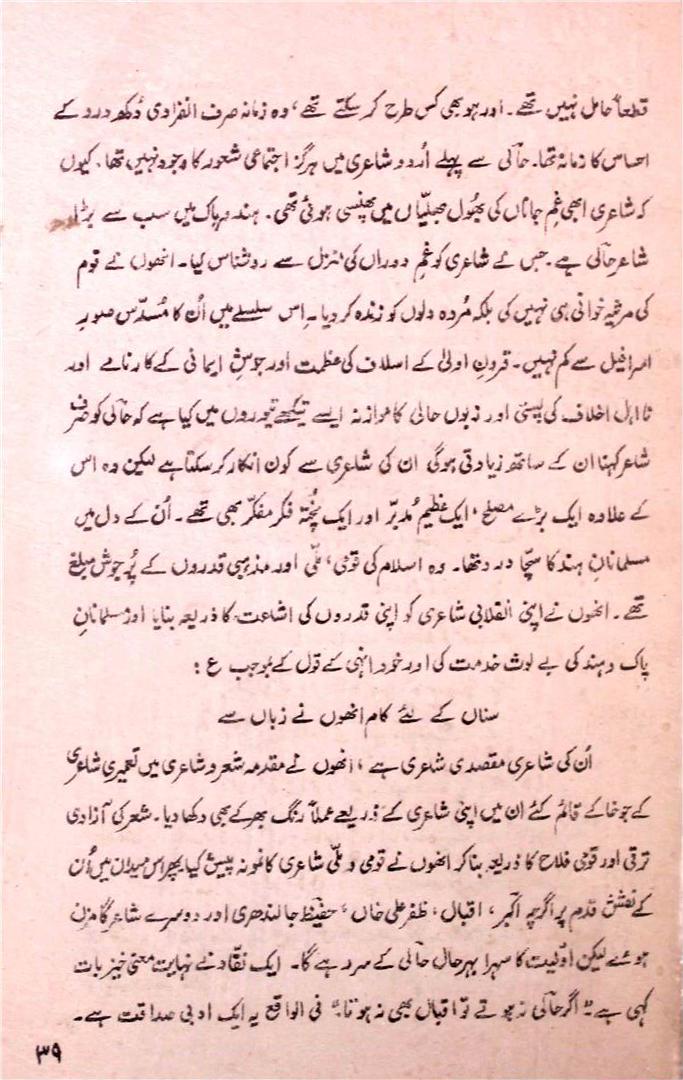 قطعاً حامل نہیں تھے۔ اور ہو بھی کس طرح کر سکتے تھے، وہ زمانہ صرف انفرادی دُکھ درد کے
احساس کا زمانہ تھا۔ حالی سے پہلے اُردو شاعری میں ہرگز اجتماعی شعور کا وجود نہیں تھا۔ کیوں
کہ شاعری ابھی غمِ جاناں کی بھُول بھلیّاں میں پھنسی ہوئی تھی۔ ہند و پاک میں سب سے بڑا
شاعر حالی ہے جس نے شاعری کو غمِ دوراں کی منزل سے روشناس کیا۔ انھوں نے قوم
کی مرثیہ خوانی ہی نہیں کی بلکہ مُردہ دلوں کو زندہ کر دیا۔ اِس سلسلے میں اُن کا مُسدّس صورِ
اسرافیل سے کم نہیں۔ قرونِ اولیٰ کے اسلاف کی عظمت اور جوشِ ایمانی کے کارنامے اور
نااہل اخلاف کی پستی اور زبوں حالی کا موازنہ ایسے تیکھے تیوروں میں کیا ہے کہ حالی کو صرف
شاعر کہنا ان کے ساتھ زیادتی ہوگی ان کی شاعری سے کون انکار کر سکتا ہے لیکن وہ اس
کے علاوہ ایک بڑے مصلح، ایک عظیم مُدبّر اور ایک پُختہ فکر مفکّر بھی تھے۔ اُن کے دل میں
مسلمانانِ ہند کا سچّا درد تھا۔ وہ اسلام کی قومی، ملّی اور مذہبی قدروں کے پُرجوش مبلغ
تھے۔ انھوں نے اپنی انقلابی شاعری کو اپنی قدروں کی اشاعت کا ذریعہ بنایا اور مسلمانانِ
پاک و ہند کی بے لوث خدمت کی اور خود انہی کے قول کے بموجب ع :
سناں کے لئے کام انھوں نے زباں سے
اُن کی شاعری مقصدی شاعری ہے، انھوں نے مقدمہ شعر و شاعری میں تعمیری شاعری
کے جو خاکے قائم کئے ان میں اپنی شاعری کے ذریعے عملاً رنگ بھر کے بھی دکھا دیا۔ شعر کی آزادی
ترقی اور قومی فلاح کا ذریعہ بنا کر انھوں نے قومی و ملّی شاعری کا نمونہ پیش کیا پھر اس میدان میں اُن
کے نقشِ قدم پر اگرچہ اکبر، اقبال، ظفر علی خاں، حفیظ جالندھری اور دوسرے شاعر گامزن
ہوئے لیکن اوّلیت کا سہرا بہرحال حالی کے سر رہے گا۔ ایک نقّاد نے نہایت معنی خیز بات
کہی ہے "اگر حالی نہ ہوتے تو اقبال بھی نہ ہوتا" فی الواقع یہ ایک ادبی صداقت ہے۔
۳۹